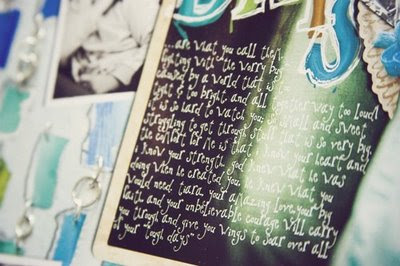 days
... are what you call them
fighting with the worry bug
caused by a world that is
tight & too bright and all together way too loud!
it is so hard to watch you, so small and sweet
struggling to get through stuff that is so very big.
the comfort for me is that i know your heart and
i know your strength. god knew what he was
doing when he created you. he knew what you
would need tiara. your amazing love, your big
faith and your unbelievable courage will carry
you through and give you wings to soar over all
of your "tough days"